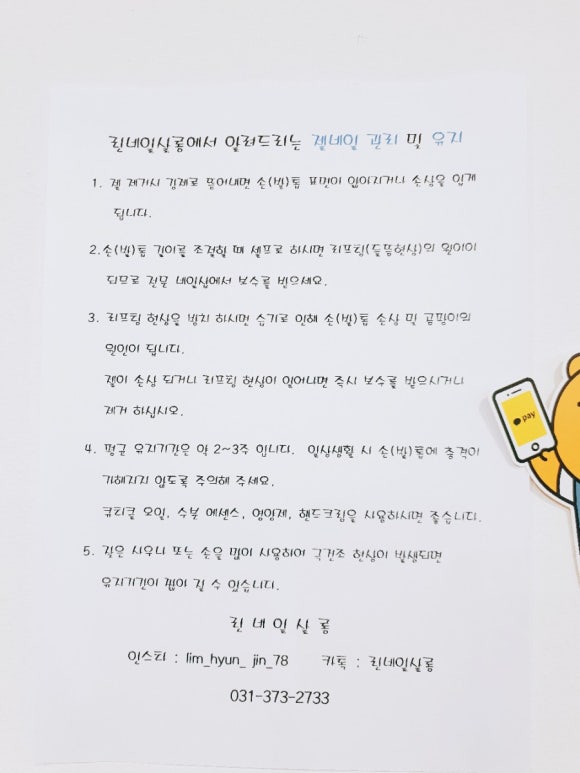 린네일살롱에서 알려드리는 젤네일 관리 및 유지
1. 젤 제거시 강제로 뜯어내면 손(발)톱 표면이 얇아지거나 손상을 입게
됩니다.
2.손(발)톱 길이를 조절할 때 셀프로 하시면 리프팅(들뜸현상)의 원인이
되므로 전문 네일샵에서 보수를 받으세요.
3. 리프팅 현상을 방치 하시면 습기로 인해 손(발)톱 손상 및 곰팡이의
원인이 됩니다.
젤이 손상 되거나 리프팅 현상이 일어나면 즉시 보수를 받으시거나
제거 하십시오.
4. 평균 유지기간은 약 2~3주 입니다. 일상생활 시 손(발)톱에 충격이
가해지지 않도록 주의해 주세요.
큐티클 오일, 수분 에센스, 영양제, 핸드크림을 사용하시면 좋습니다.
5. 잦은 사우나 또는 손을 많이 사용하여 극건조 현상이 발생되면
유지기간이 짧아 질 수 있습니다.
린 네 일 살 롱
인스타 : lim_hyun_ jin_78 카톡 : 린네일살롱
031-373-2733
pay